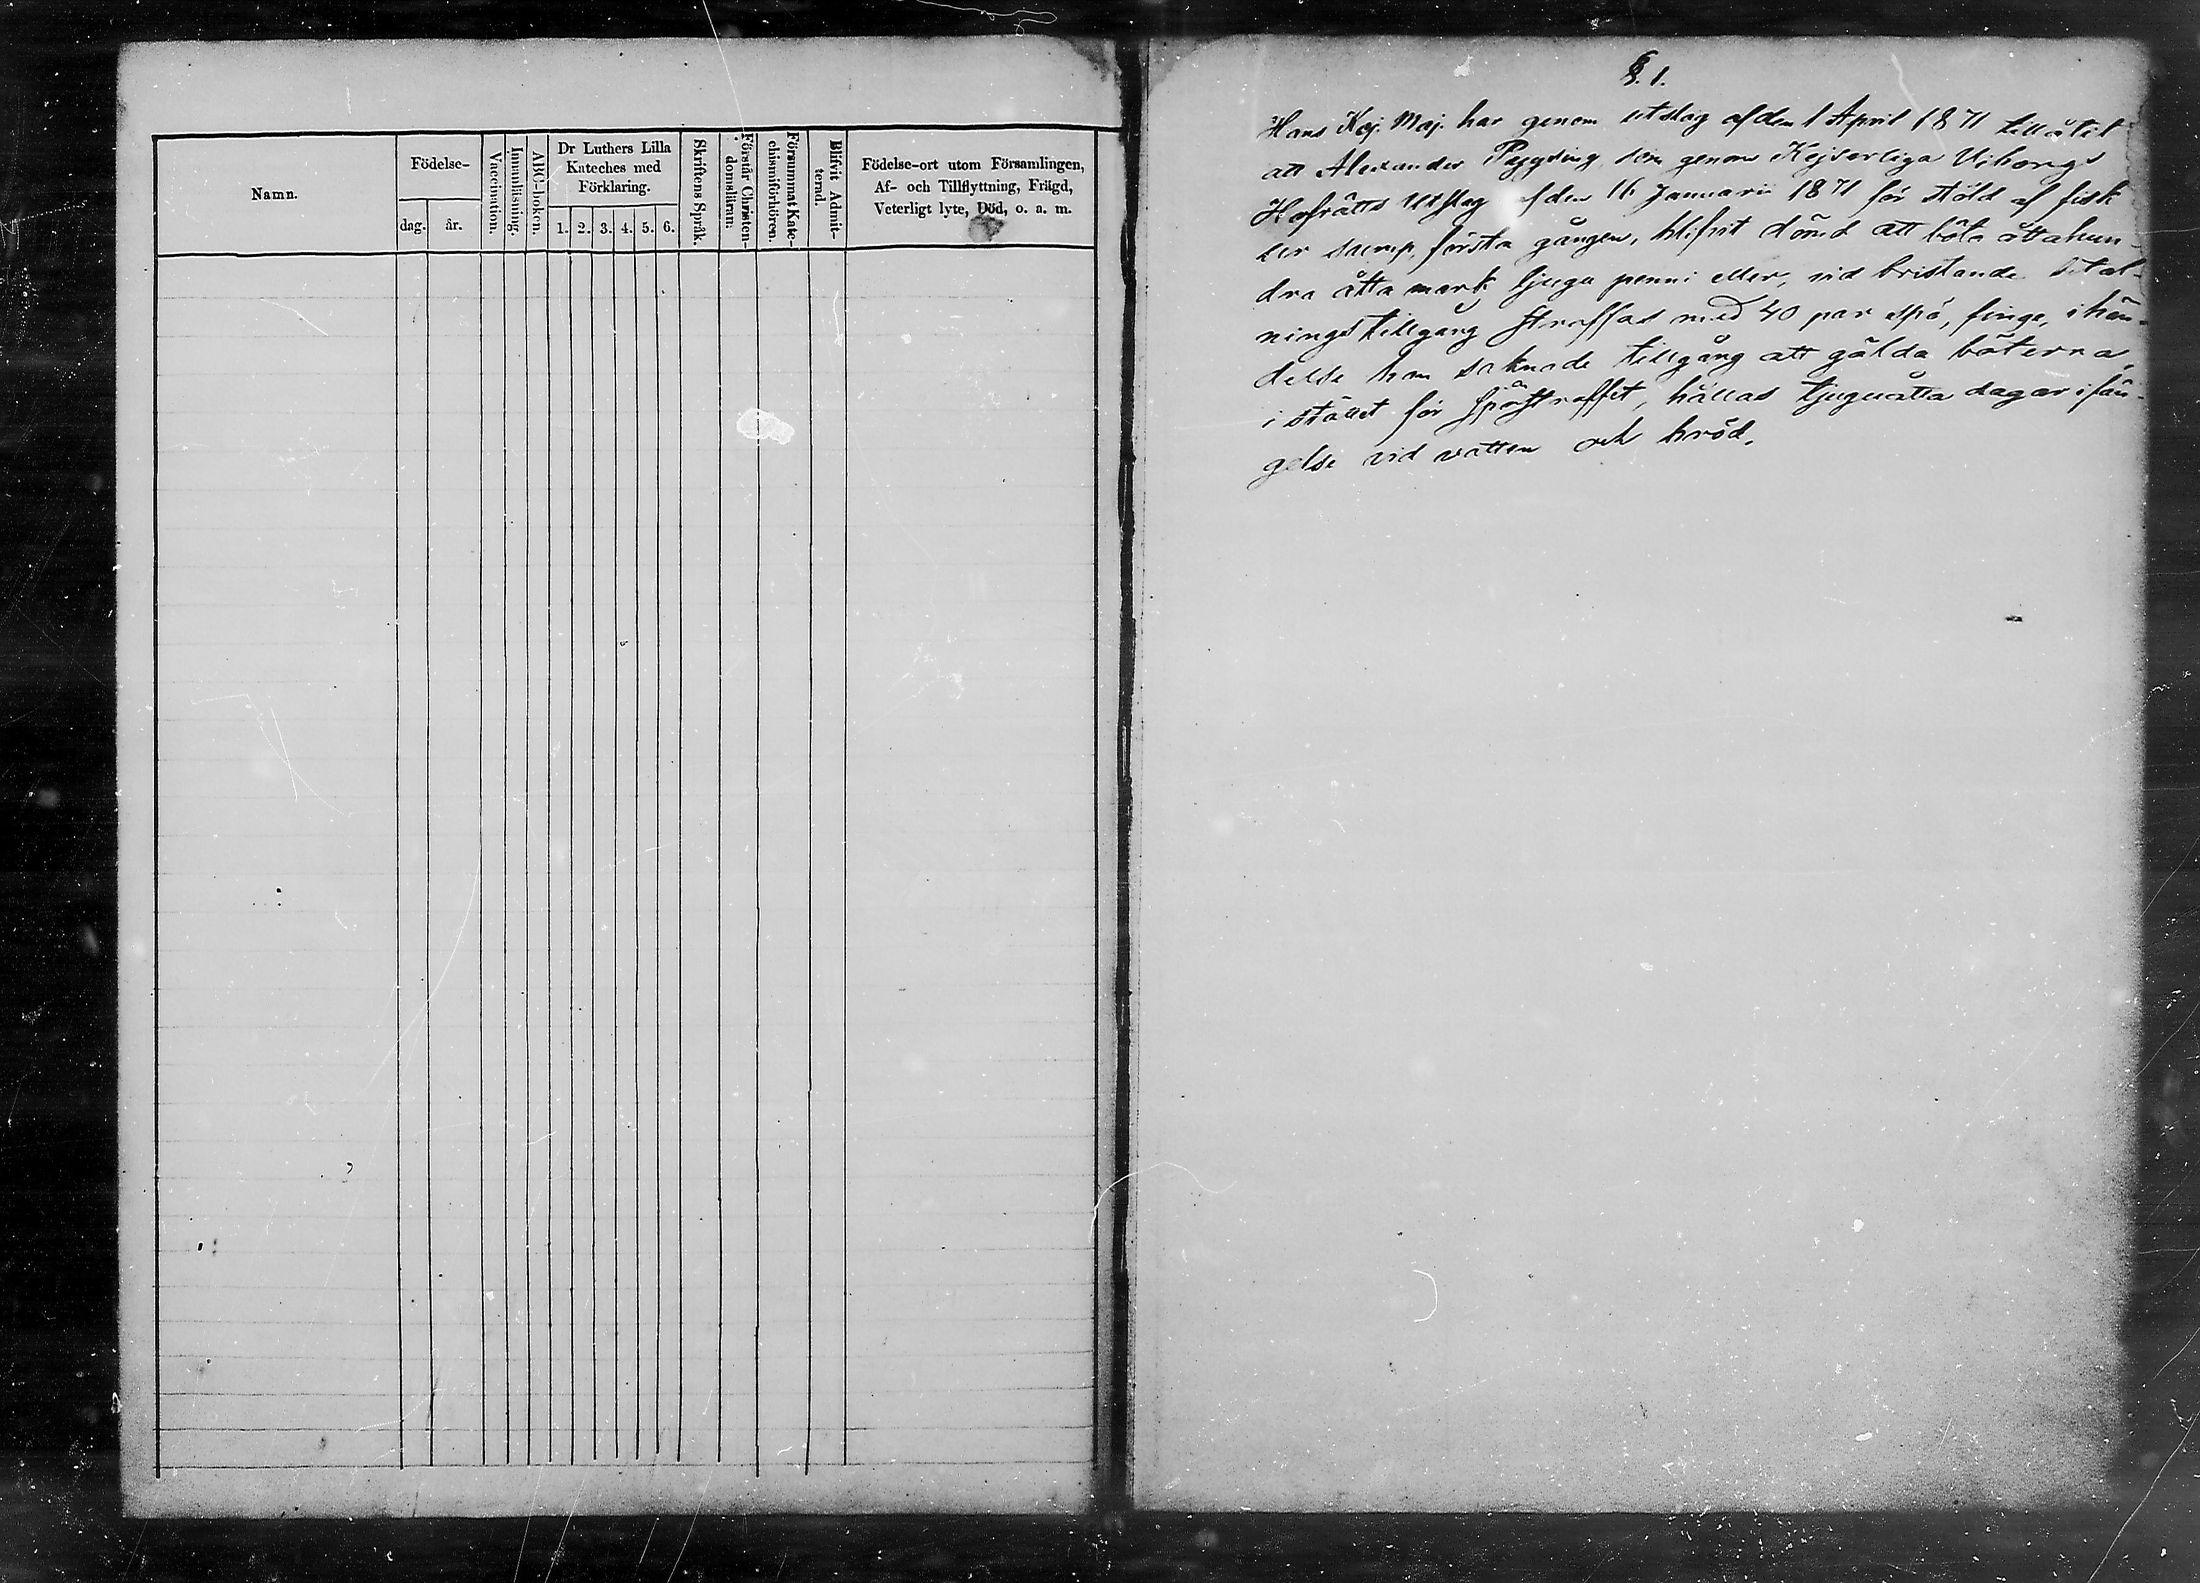 Namn.
Födelse-
dag.
år.
Vaccination.
Innanläsning.
ABC-boken.
Dr Luthers Lilla
Kateches med
Förklaring.
1. 2. 3. 4. 5. 6.
Skriftens Språk.
Förstår Christen-
domsläran:
Försummat Kate-
chismiförhören.
Blifvit Admit-
terad.
Födelse-ort utom Församlingen,
Af- och Tillflyttning, Frägd,
Veterligt lyte, Död, o. a. m.
§. 1.
Hans Kej. Maj. har genom utslag af den 1 April 1871 tillåtit
att Alexander som genom Kejserliga Viborgs
Hofrätts utslag af den 16 Januarii 1871 för stöld af fisk
ur sump, första gången, blifvit dömd att böta åttahun-
dra åtta mark tjugu penni eller, vid bristande betal-
ningstillgång straffas med 40 par spö, finge, i hän-
delse han saknade tillgång att gälda böterna,
i stället för spöstraffet, hållas tjuguåtta dagar i fän-
gelse vid vatten och bröd.